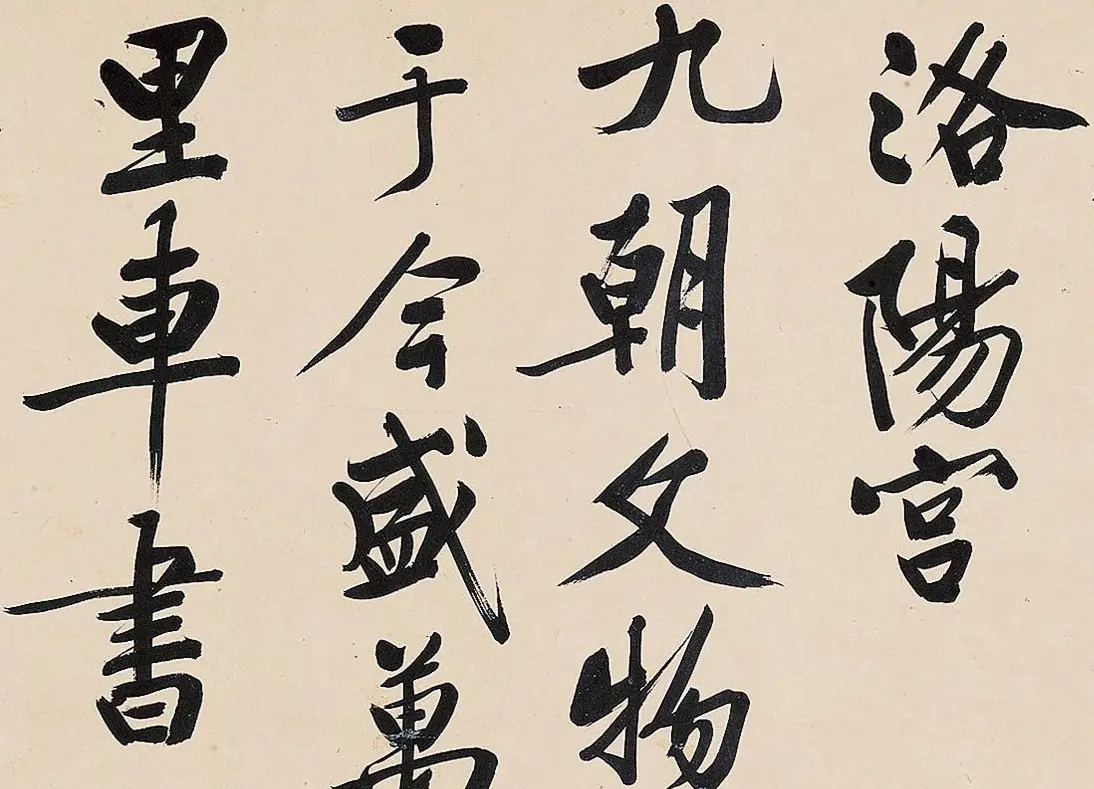 洛陽宮
九朝文物
于今盛萬
里車書